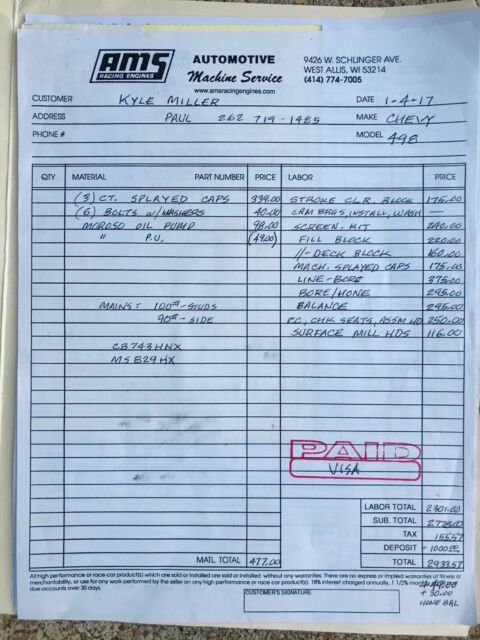 AMS
RACING ENGINES
AUTOMOTIVE
Machine Service
www.amsracingengines.com
9426 W. SCHLINGER AVE.
WEST ALLIS, WI 53214
(414) 774-7005
CUSTOMER KYLE MILLER DATE 1-4-17
ADDRESS PAUL 262 719-1485 MAKE CHEVY
PHONE # MODEL 498
QTY MATERIAL PART NUMBER PRICE LABOR PRICE
(3) CT. SPLAYED CAPS 339.00 STROKE CLR. BLOCK 175.00
(6) BOLTS W/WASHERS 40.00 CAM BRGS, INSTALL, WASH —
MOROSO OIL PUMP 98.00 SCREEN-KIT 240.00
" P.U. (49.00) FILL BLOCK 220.00
//-DECK BLOCK 160.00
MACH. SPLAYED CAPS 175.00
LINE-BORE 375.00
BORE/HONE 295.00
MAINS = 100#-STUDS BALANCE 295.00
90#-SIDE CC, CHK SEATS, ASSM HD 250.00
SURFACE MILL HDS 116.00
CB743HNX
MSB29HX
PAID
VISA
LABOR TOTAL 2301.00
SUB. TOTAL 2778.00
TAX 155.57
DEPOSIT -1000.00
MATL TOTAL 477.00 TOTAL 2933.57
All high performance or race car product(s) which are sold or installed are sold or installed without any warranties. There are no express or implied warranties of fitness or
merchantability, or use for any work performed by the seller on any high performance or race car product(s). 18% interest charged annually, 1 1/2% month
due accounts over 30 days.
+49.00
+ 30.00
HONE BAL
CUSTOMER'S SIGNATURE